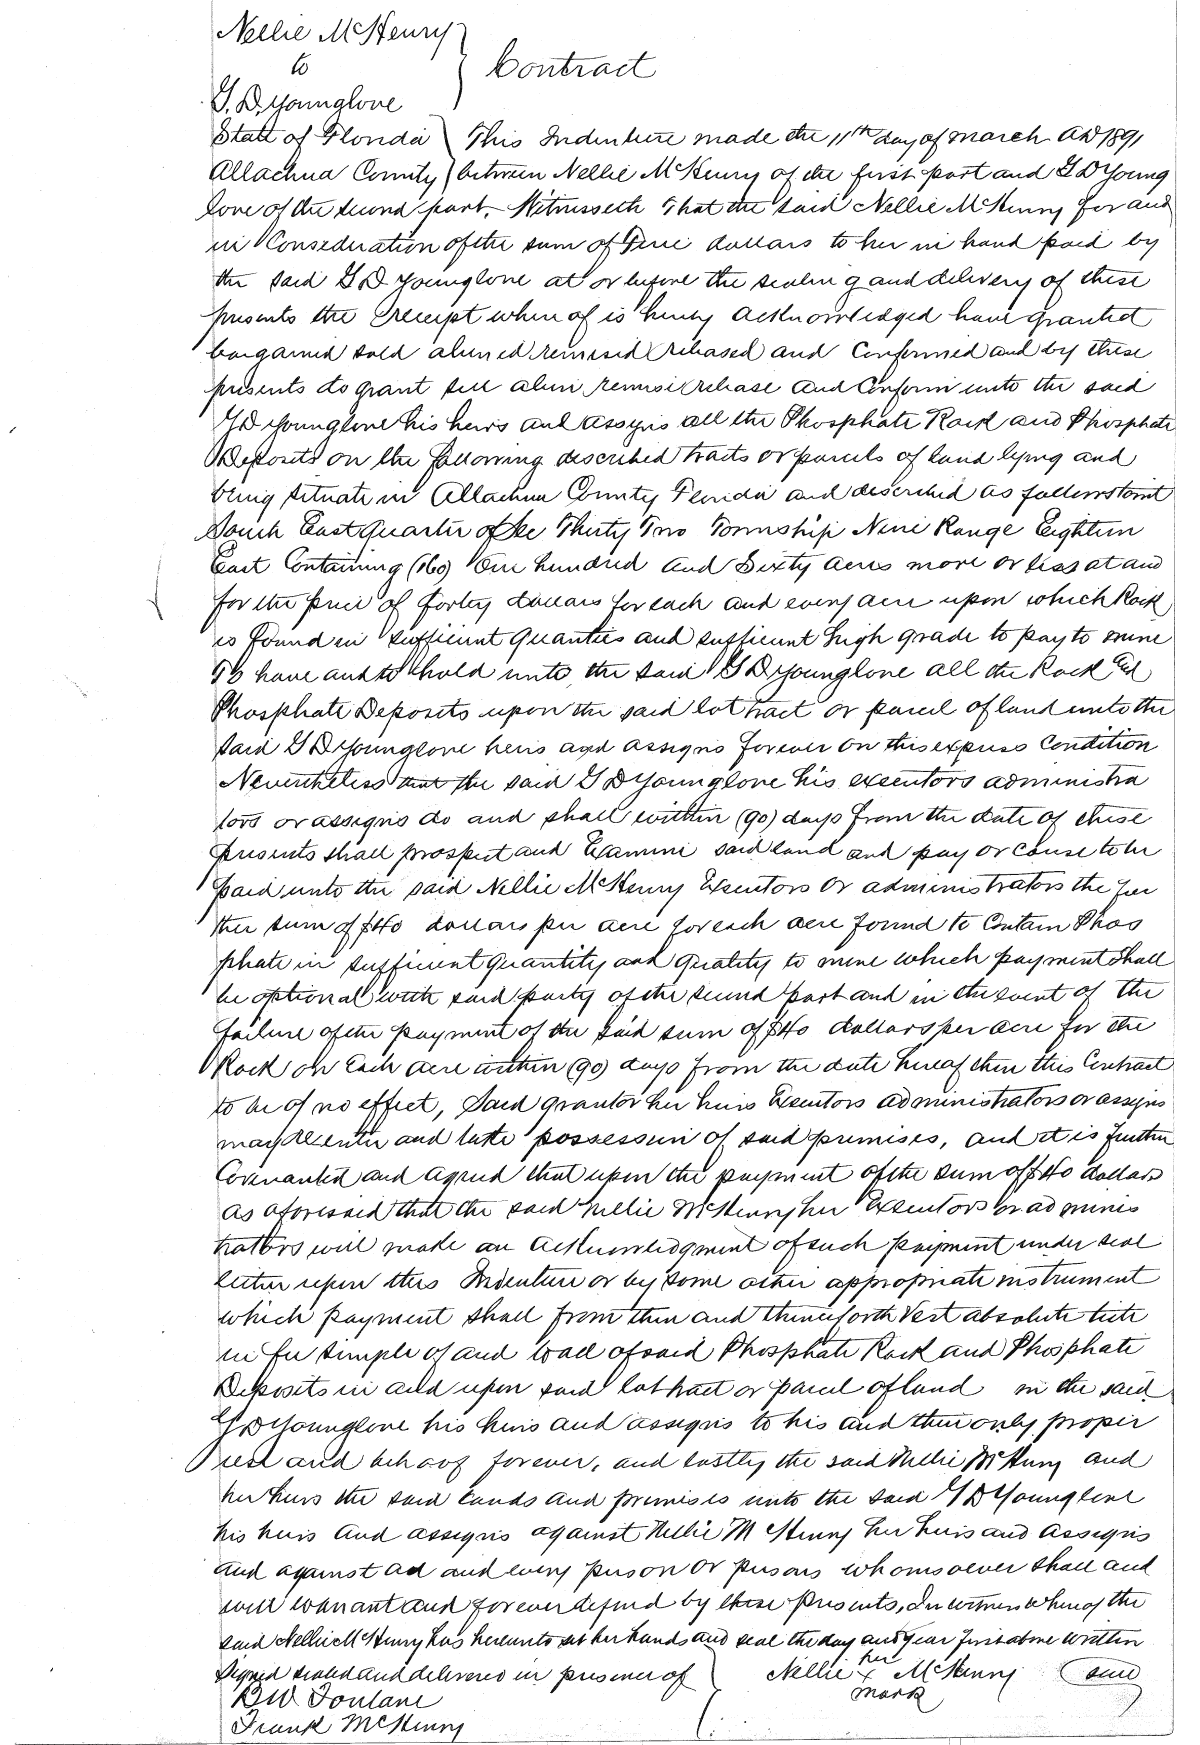 Nellie McHenry
to
Contract
G. D. Younglove
State of Florida This Indenture made the 11th day of March AD 1891
Allachua County between Nellie McHenry of the first part and G D Young
love of the second part, Witnesseth That the said Nellie McHenry for and
in Consideration of the sum of Five dollars to her in hand paid by
the said G D Younglove at or before the sealing and delivery of these
presents the receipt where of is hereby acknowledged have granted
bargained sold aliened remised released and Confirmed and by these
presents do grant sell alien remise release and Confirm unto the said
G D Younglove his heirs and assigns all the Phosphate Rock and Phosphate
Deposits on the following described tracts or parcels of land lying and
being situate in Allachua County Florida and described as follows towit
South East quarter of Sec Thirty Two Township Nine Range Eighteen
East Containing (160) One hundred and Sixty acres more or less at and
for the price of forty dollars for each and every acre upon which Rock
is found in sufficient quanties and sufficient high grade to pay to mine
To have and to hold unto the said G D Younglove all the Rock and
Phosphate Deposits upon the said lot tract or parcel of land unto the
said G D Younglove heirs and assigns forever on this express Condition
Nevertheless that the said G D Younglove his executors administra
tors or assigns do and shall within (90) days from the date of these
presents shall prospect and Examine said land and pay or cause to be
paid unto the said Nellie McHenry Executors or administrators the fur
ther sum of $40 dollars per acre for each acre found to Contain Phos
phate in sufficient quantity and quality to mine which payment shall
be optional with said party of the second part and in the event of the
failure of the payment of the said sum of $40 dollars per acre for the
Rock on Each acre within (90) days from the date hereof then this Contract
to be of no effect, Said grantor her heirs Executors administrators or assigns
may Reenter and take possession of said premises, and it is further
Covenanted and agreed that upon the payment of the sum of $40 dollars
as aforesaid that the said Nellie McHenry her Executors or adminis
trators will make an acknowledgment of such payment under seal
either upon this Indenture or by some other appropriate instrument
which payment shall from then and thenceforth Vest absolute title
in fee simple of and to all of said Phosphate Rock and Phosphate
Deposits in and upon said lot tract or parcel of land in the said
G D Younglove his heirs and assigns to his and their only proper
use and behoof forever, and lastly the said Nellie McHenry and
her heirs the said lands and premises unto the said G D Younglove
his heirs and assigns against Nellie McHenry her heirs and assigns
and against all and every person or persons whomsoever shall and
will warrant and forever defend by these presents, In witness whereof the
said Nellie McHenry has hereunto set her hands and seal the day and year first above written
Signed sealed and delivered in presence of Nellie her x mark McHenry seal
B W Fontane
Frank McHenry